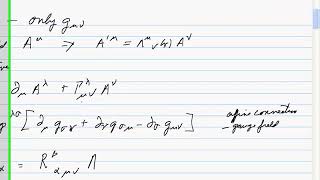 - only g_{μν}
A^μ ⇒ A'^μ = Λ^μ_ν(x) A^ν
∂_μ A^λ + Γ^λ_{μν} A^ν
[∂_μ g_{σν} + ∂_ν g_{σμ} - ∂_σ g_{μν}]
affine connection
- gauge field
= R^β_{αμν} Λ